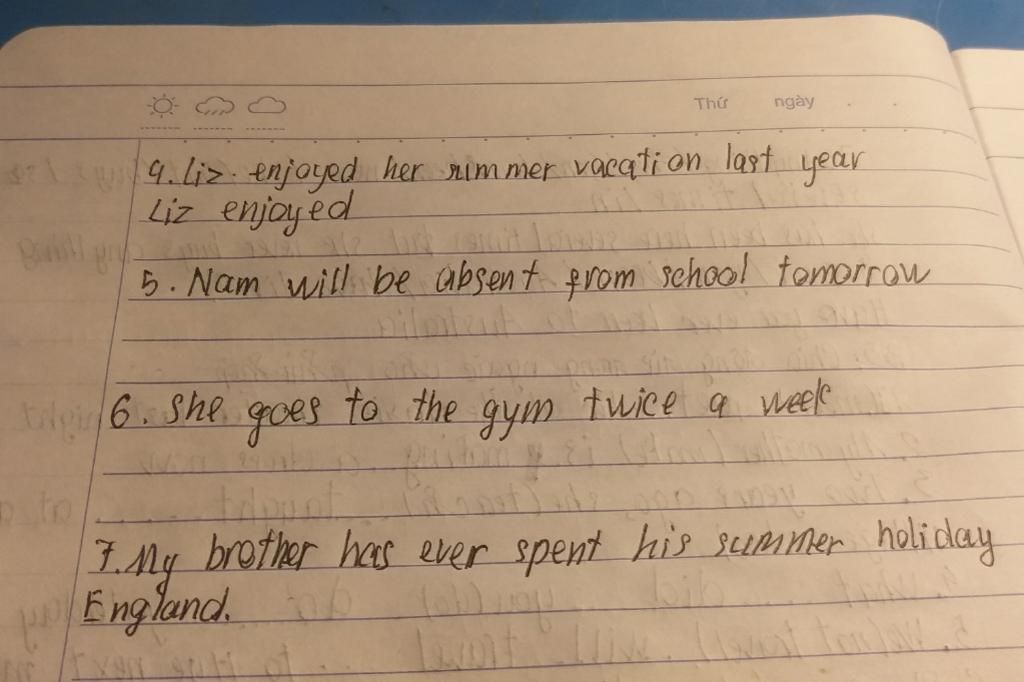 Thứ ngày . .
4. Liz. enjoyed her summer vacation last year
Liz enjoyed
5. Nam will be absent from school tomorrow
6. She goes to the gym twice a week
7. My brother has ever spent his summer holiday
England.